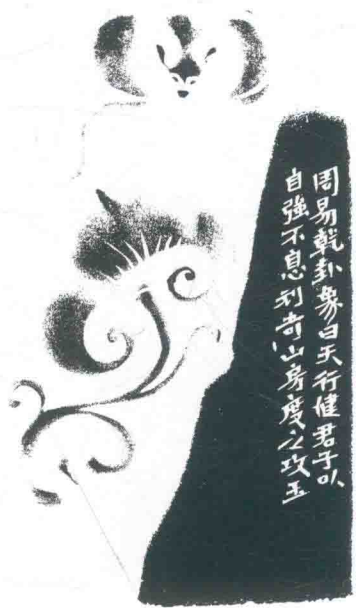 周易乾卦象曰天行健君子以
自強不息利奇山房度之攻玉